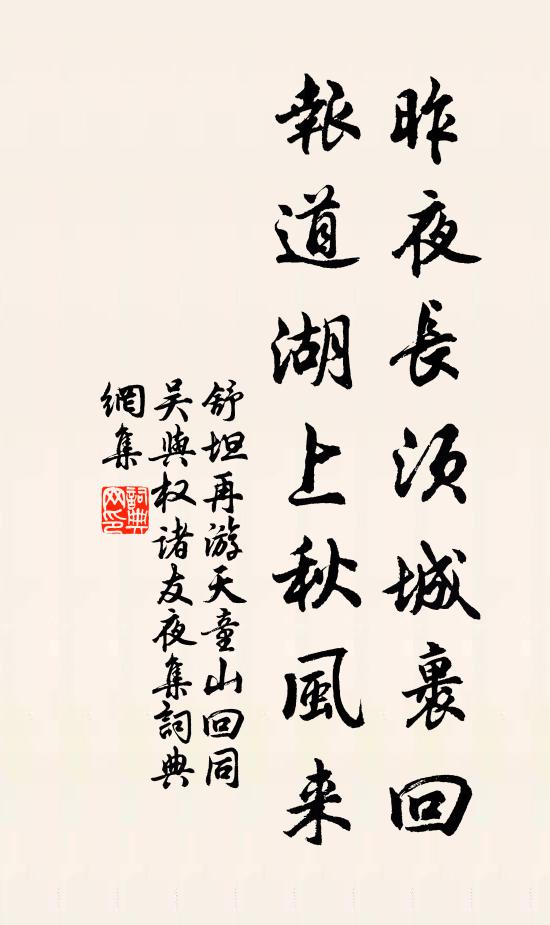 昨夜長須城裏回
報道湖上秋風来
舒坦再游天童山回同
吴與权诸友夜集詞典
網集
詞典
网印